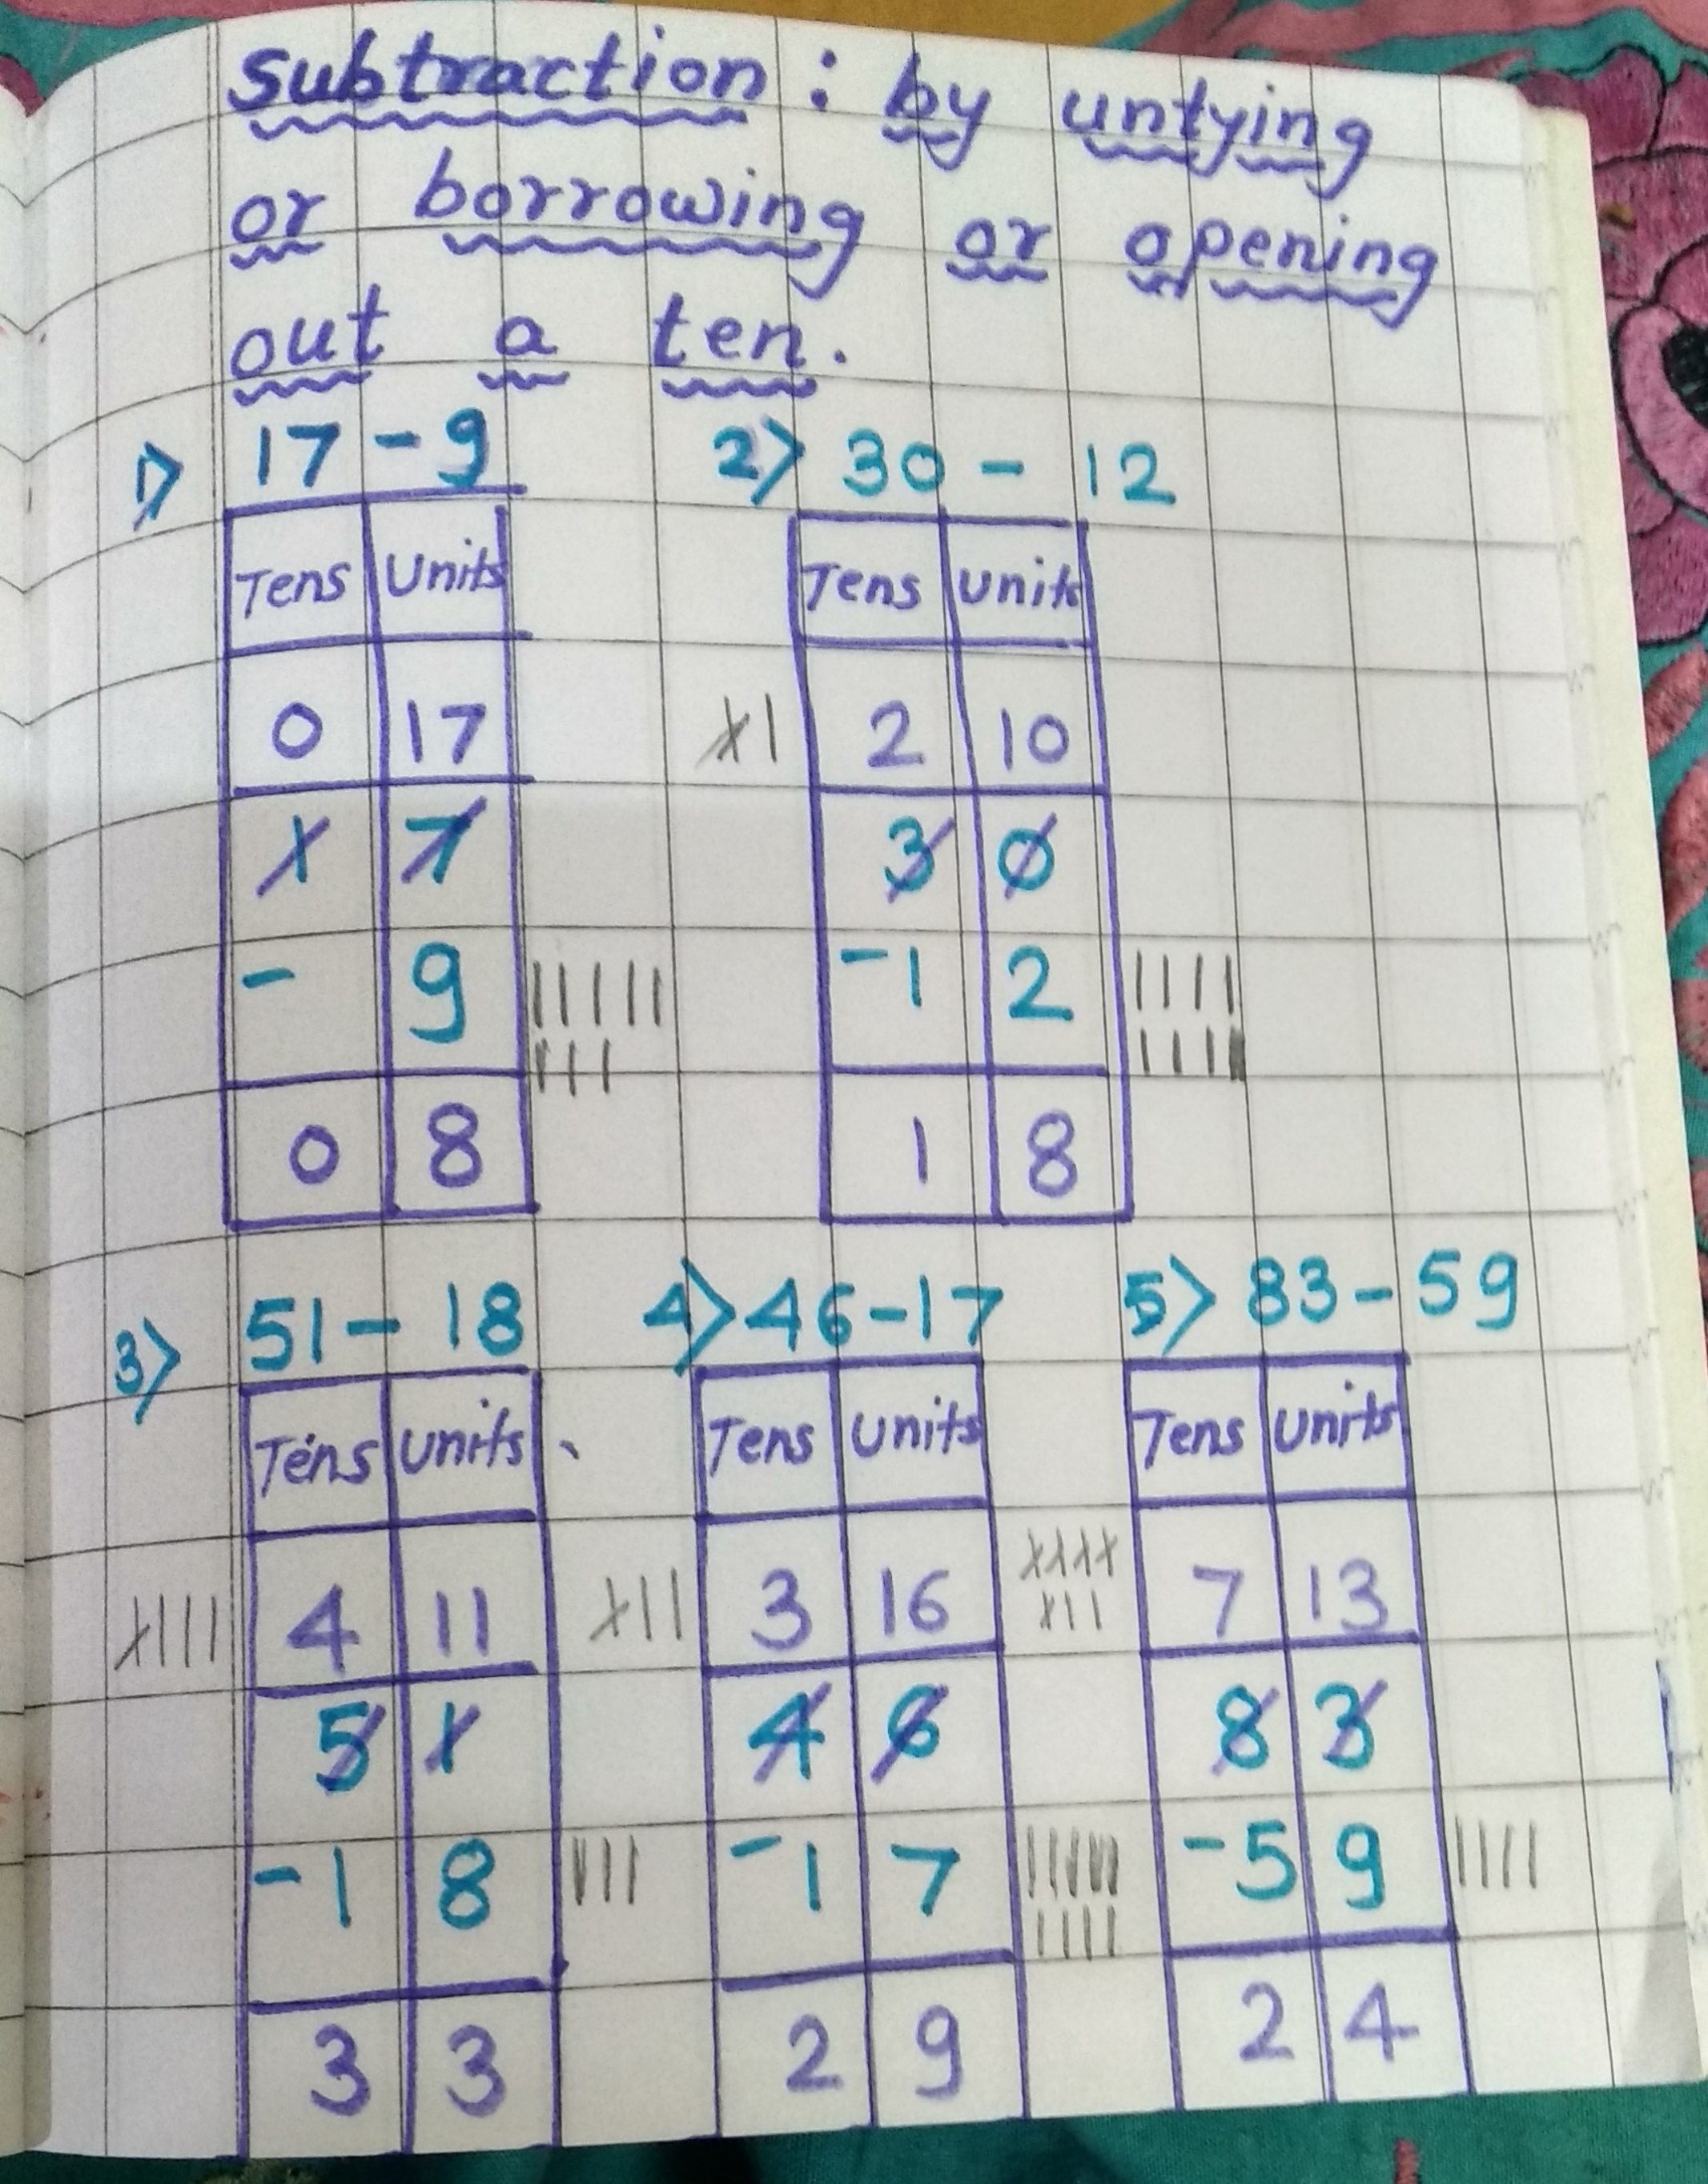 Subtraction : by untying
or borrowing or opening
out a ten.
1) 17 - 9
Tens Units
0 17
1 7
- 9
0 8
2) 30 - 12
Tens Units
2 10
3 0
- 1 2
1 8
3) 51 - 18
Tens Units
4 11
5 1
- 1 8
3 3
4) 46 - 17
Tens Units
3 16
4 6
- 1 7
2 9
5) 83 - 59
Tens Units
7 13
8 3
- 5 9
2 4